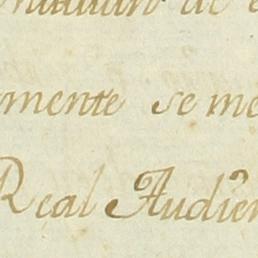 de
mente se me
Real Audien